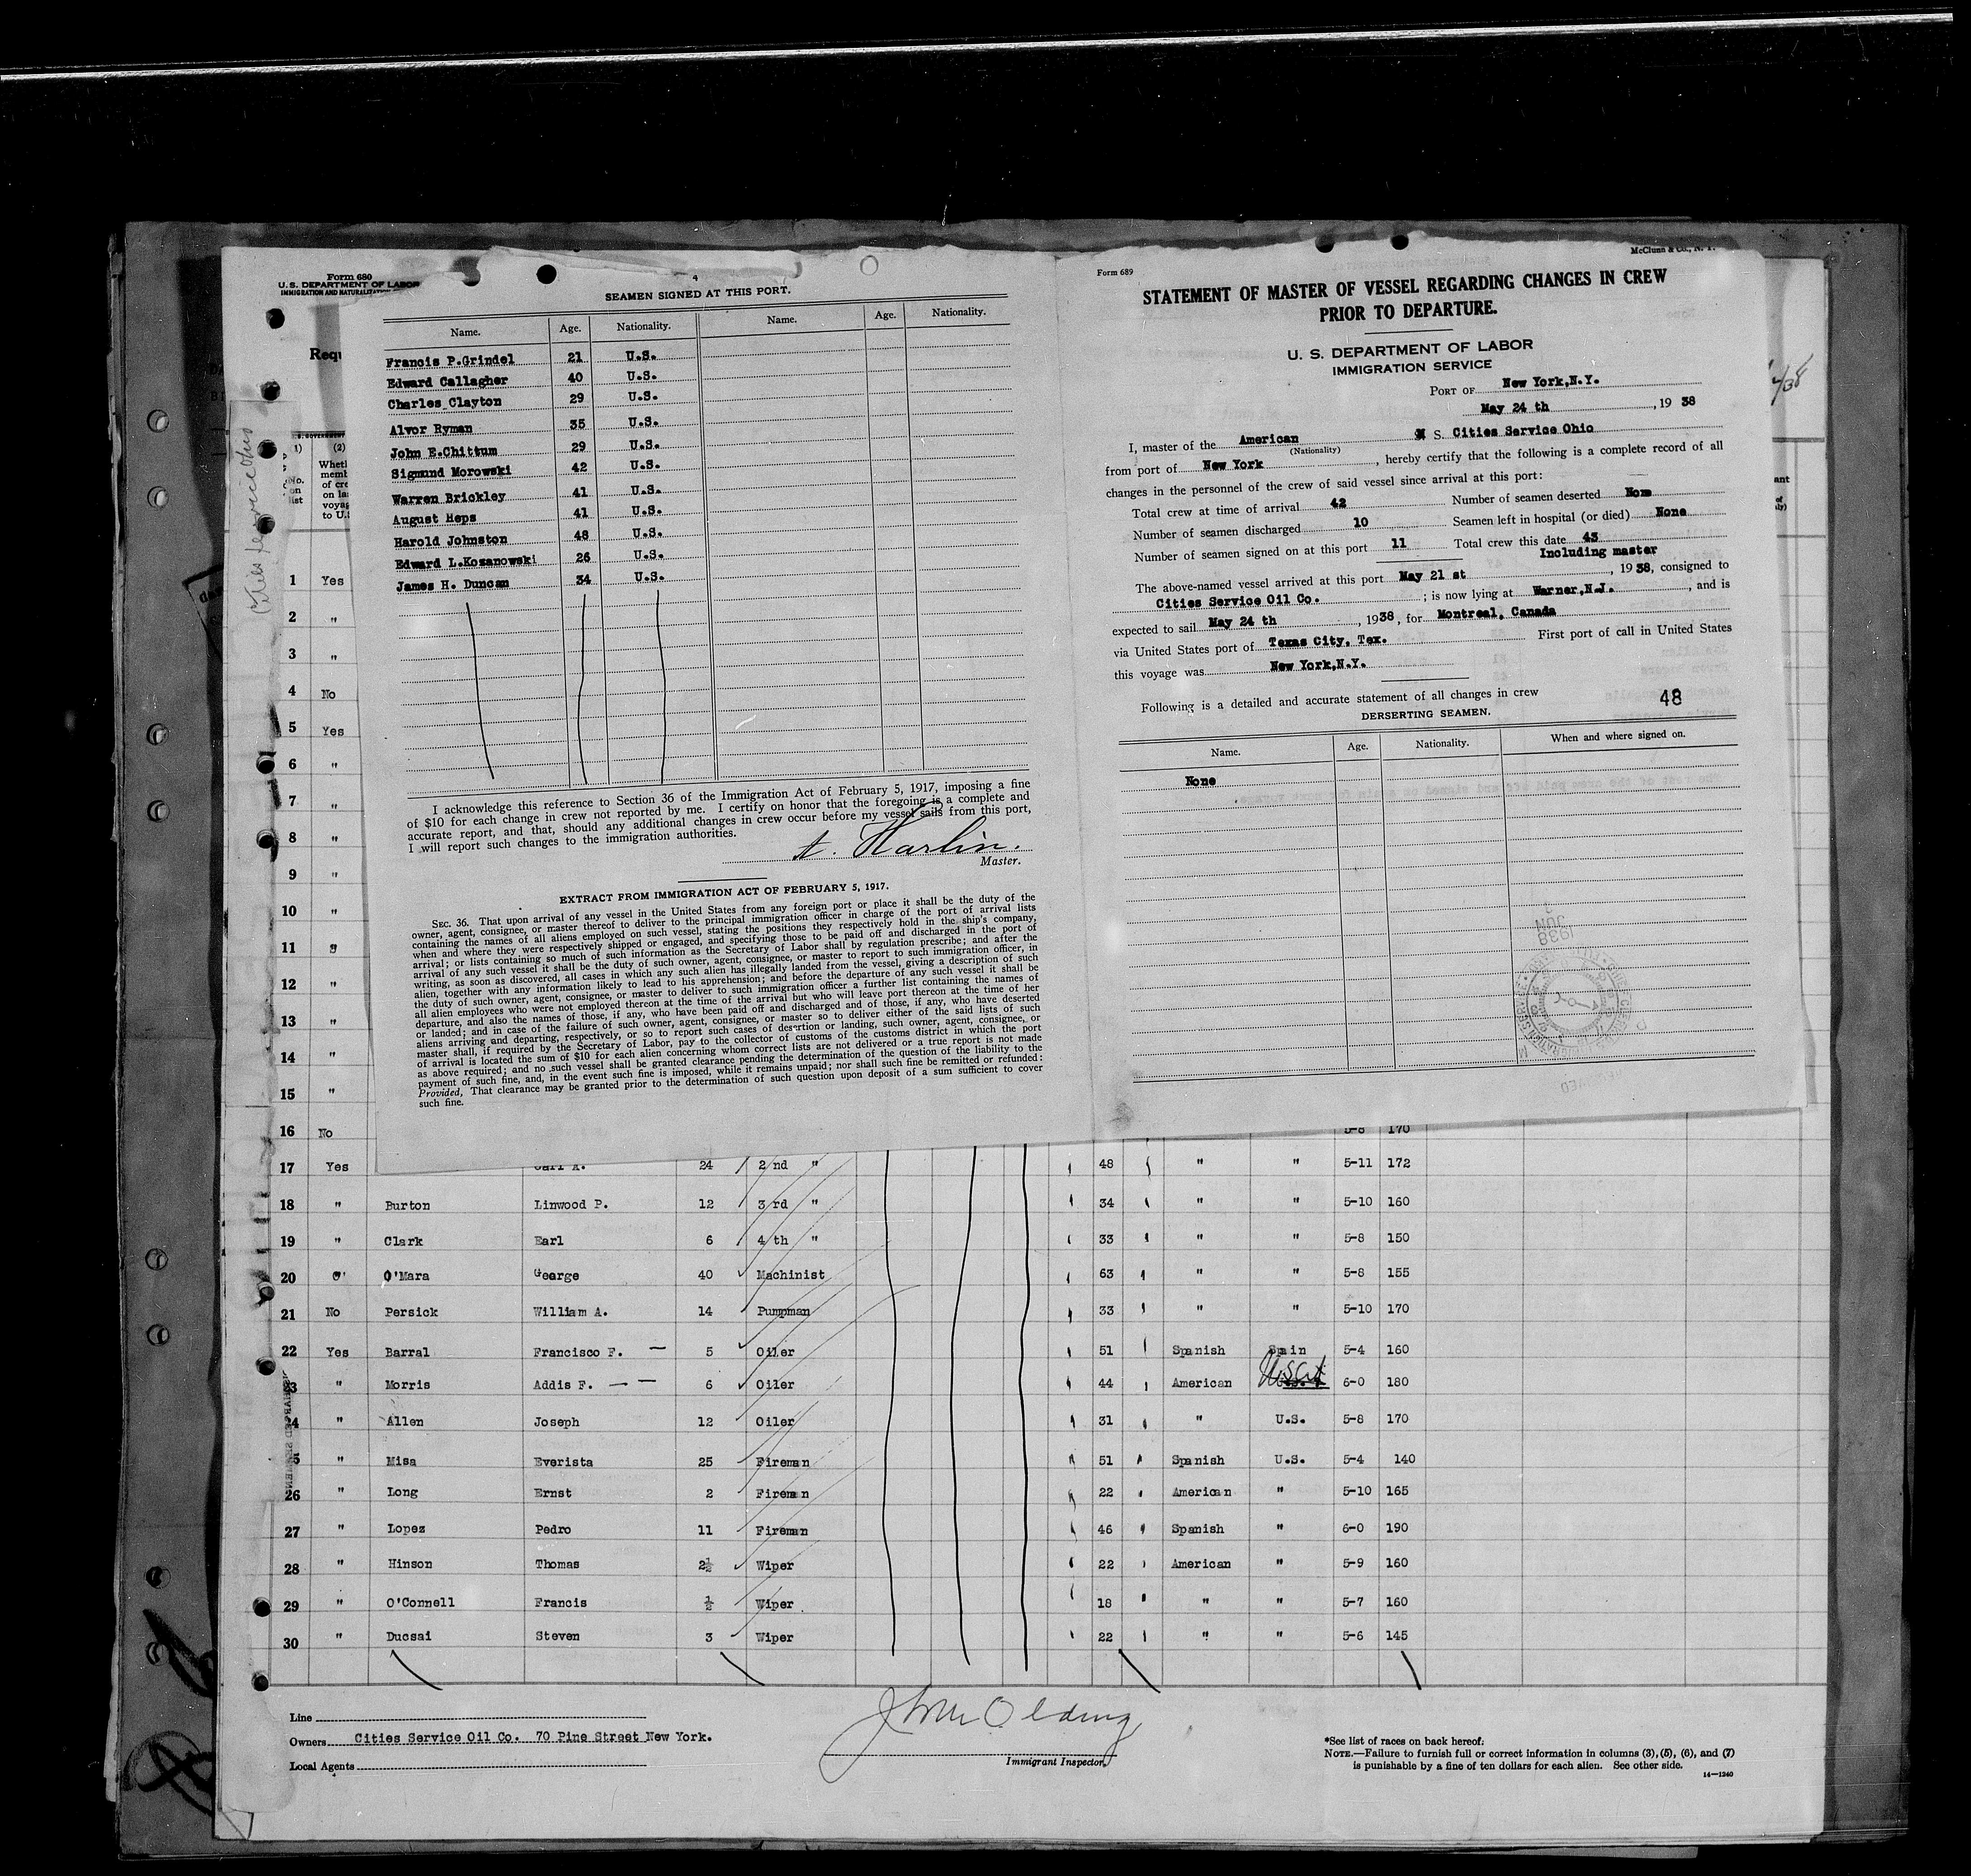 Form 680
U.S. DEPARTMENT OF LABOR
IMMIGRATION AND
4
SEAMEN SIGNED AT THIS PORT.
Name. Age. Nationality. Name. Age. Nationality.
Francis P.Grindel 21 U.S.
Edward Callagher 40 U.S.
Charles Clayton 29 U.S.
Alvor Ryman 35 U.S.
John E.Chittum 29 U.S.
Sigmund Morowski 42 U.S.
Warren Brickley 41 U.S.
August Heps 41 U.S.
Harold Johnston 48 U.S.
Edward L.Kozanowski 26 U.S.
James H. Duncan 34 U.S.
I acknowledge this reference to Section 36 of the Immigration Act of February 5, 1917, imposing a fine
of $10 for each change in crew not reported by me. I certify on honor that the foregoing is a complete and
accurate report, and that, should any additional changes in crew occur before my vessel sails from this port,
I will report such changes to the immigration authorities.
A. Harlin.
Master.
EXTRACT FROM IMMIGRATION ACT OF FEBRUARY 5, 1917.
SEC. 36. That upon arrival of any vessel in the United States from any foreign port or place it shall be the duty of the
owner, agent, consignee, or master thereof to deliver to the principal immigration officer in charge of the port of arrival lists
containing the names of all aliens employed on such vessel, stating the positions they respectively hold in the ship's company,
when and where they were respectively shipped or engaged, and specifying those to be paid off and discharged in the port of
arrival; or lists containing so much of such information as the Secretary of Labor shall by regulation prescribe; and after the
arrival of any such vessel it shall be the duty of such owner, agent, consignee, or master to report to such immigration officer, in
writing, as soon as discovered, all cases in which any such alien has illegally landed from the vessel, giving a description of such
alien, together with any information likely to lead to his apprehension; and before the departure of any such vessel it shall be
the duty of such owner, agent, consignee, or master to deliver to such immigration officer a further list containing the names of
all alien employees who were not employed thereon at the time of the arrival but who will leave port thereon at the time of her
departure, and also the names of those, if any, who have been paid off and discharged and of those, if any, who have deserted
or landed; and in case of the failure of such owner, agent, consignee, or master so to deliver either of the said lists of such
aliens arriving and departing, respectively, or so to report such cases of desertion or landing, such owner, agent, consignee, or
master shall, if required by the Secretary of Labor, pay to the collector of customs of the customs district in which the port
of arrival is located the sum of $10 for each alien concerning whom correct lists are not delivered or a true report is not made
as above required; and no such vessel shall be granted clearance pending the determination of the question of the liability to the
payment of such fine, and, in the event such fine is imposed, while it remains unpaid; nor shall such fine be remitted or refunded:
Provided, That clearance may be granted prior to the determination of such question upon deposit of a sum sufficient to cover
such fine.
McClunn & Co., N. Y.
Form 689
STATEMENT OF MASTER OF VESSEL REGARDING CHANGES IN CREW
PRIOR TO DEPARTURE.
U. S. DEPARTMENT OF LABOR
IMMIGRATION SERVICE
PORT OF New York,N.Y.
May 24 th , 19 38
I, master of the American S. Cities Service Ohio
(Nationality)
from port of New York , hereby certify that the following is a complete record of all
changes in the personnel of the crew of said vessel since arrival at this port:
Total crew at time of arrival 42 Number of seamen deserted None
Number of seamen discharged 10 Seamen left in hospital (or died) None
Number of seamen signed on at this port 11 Total crew this date 43
Including master
The above-named vessel arrived at this port May 21 st , 1938, consigned to
Cities Service Oil Co. ; is now lying at Warner,N.J. , and is
expected to sail May 24 th , 1938, for Montreal, Canada
via United States port of Texas City, Tex. First port of call in United States
this voyage was New York,N.Y.
Following is a detailed and accurate statement of all changes in crew
48
DERSERTING SEAMEN.
Name. Age. Nationality. When and where signed on.
None
(1) (2)
No. on list
1 Yes
2 "
3 "
4 No
5 Yes
6 "
7 "
8 "
9 "
10 "
11 "
12 "
13 "
14 "
15 "
16 No 5-8 170
17 Yes Carl A. 24 2 nd " 48 " " 5-11 172
18 " Burton Linwood P. 12 3 rd " 34 " " 5-10 160
19 " Clark Earl 6 4 th " 33 " " 5-8 150
20 O'Mara George 40 Machinist 63 " " 5-8 155
21 No Persick William A. 14 Pumpman 33 " " 5-10 170
22 Yes Barral Francisco F. — 5 Oiler 51 Spanish Spain 5-4 160
23 " Morris Addis F. — — 6 Oiler 44 American USCit 6-0 180
24 " Allen Joseph 12 Oiler 31 " U.S. 5-8 170
25 " Misa Everista 25 Fireman 51 Spanish U.S. 5-4 140
26 " Long Ernst 2 Fireman 22 American " 5-10 165
27 " Lopez Pedro 11 Fireman 46 Spanish " 6-0 190
28 " Hinson Thomas 2½ Wiper 22 American " 5-9 160
29 " O'Connell Francis ½ Wiper 18 " " 5-7 160
30 " Ducsai Steven 3 Wiper 22 " " 5-6 145
Line
Owners Cities Service Oil Co. 70 Pine Street New York.
Local Agents
Immigrant Inspector
*See list of races on back hereof.
NOTE.—Failure to furnish full or correct information in columns (3), (5), (6), and (7)
is punishable by a fine of ten dollars for each alien. See other side.
14—1240